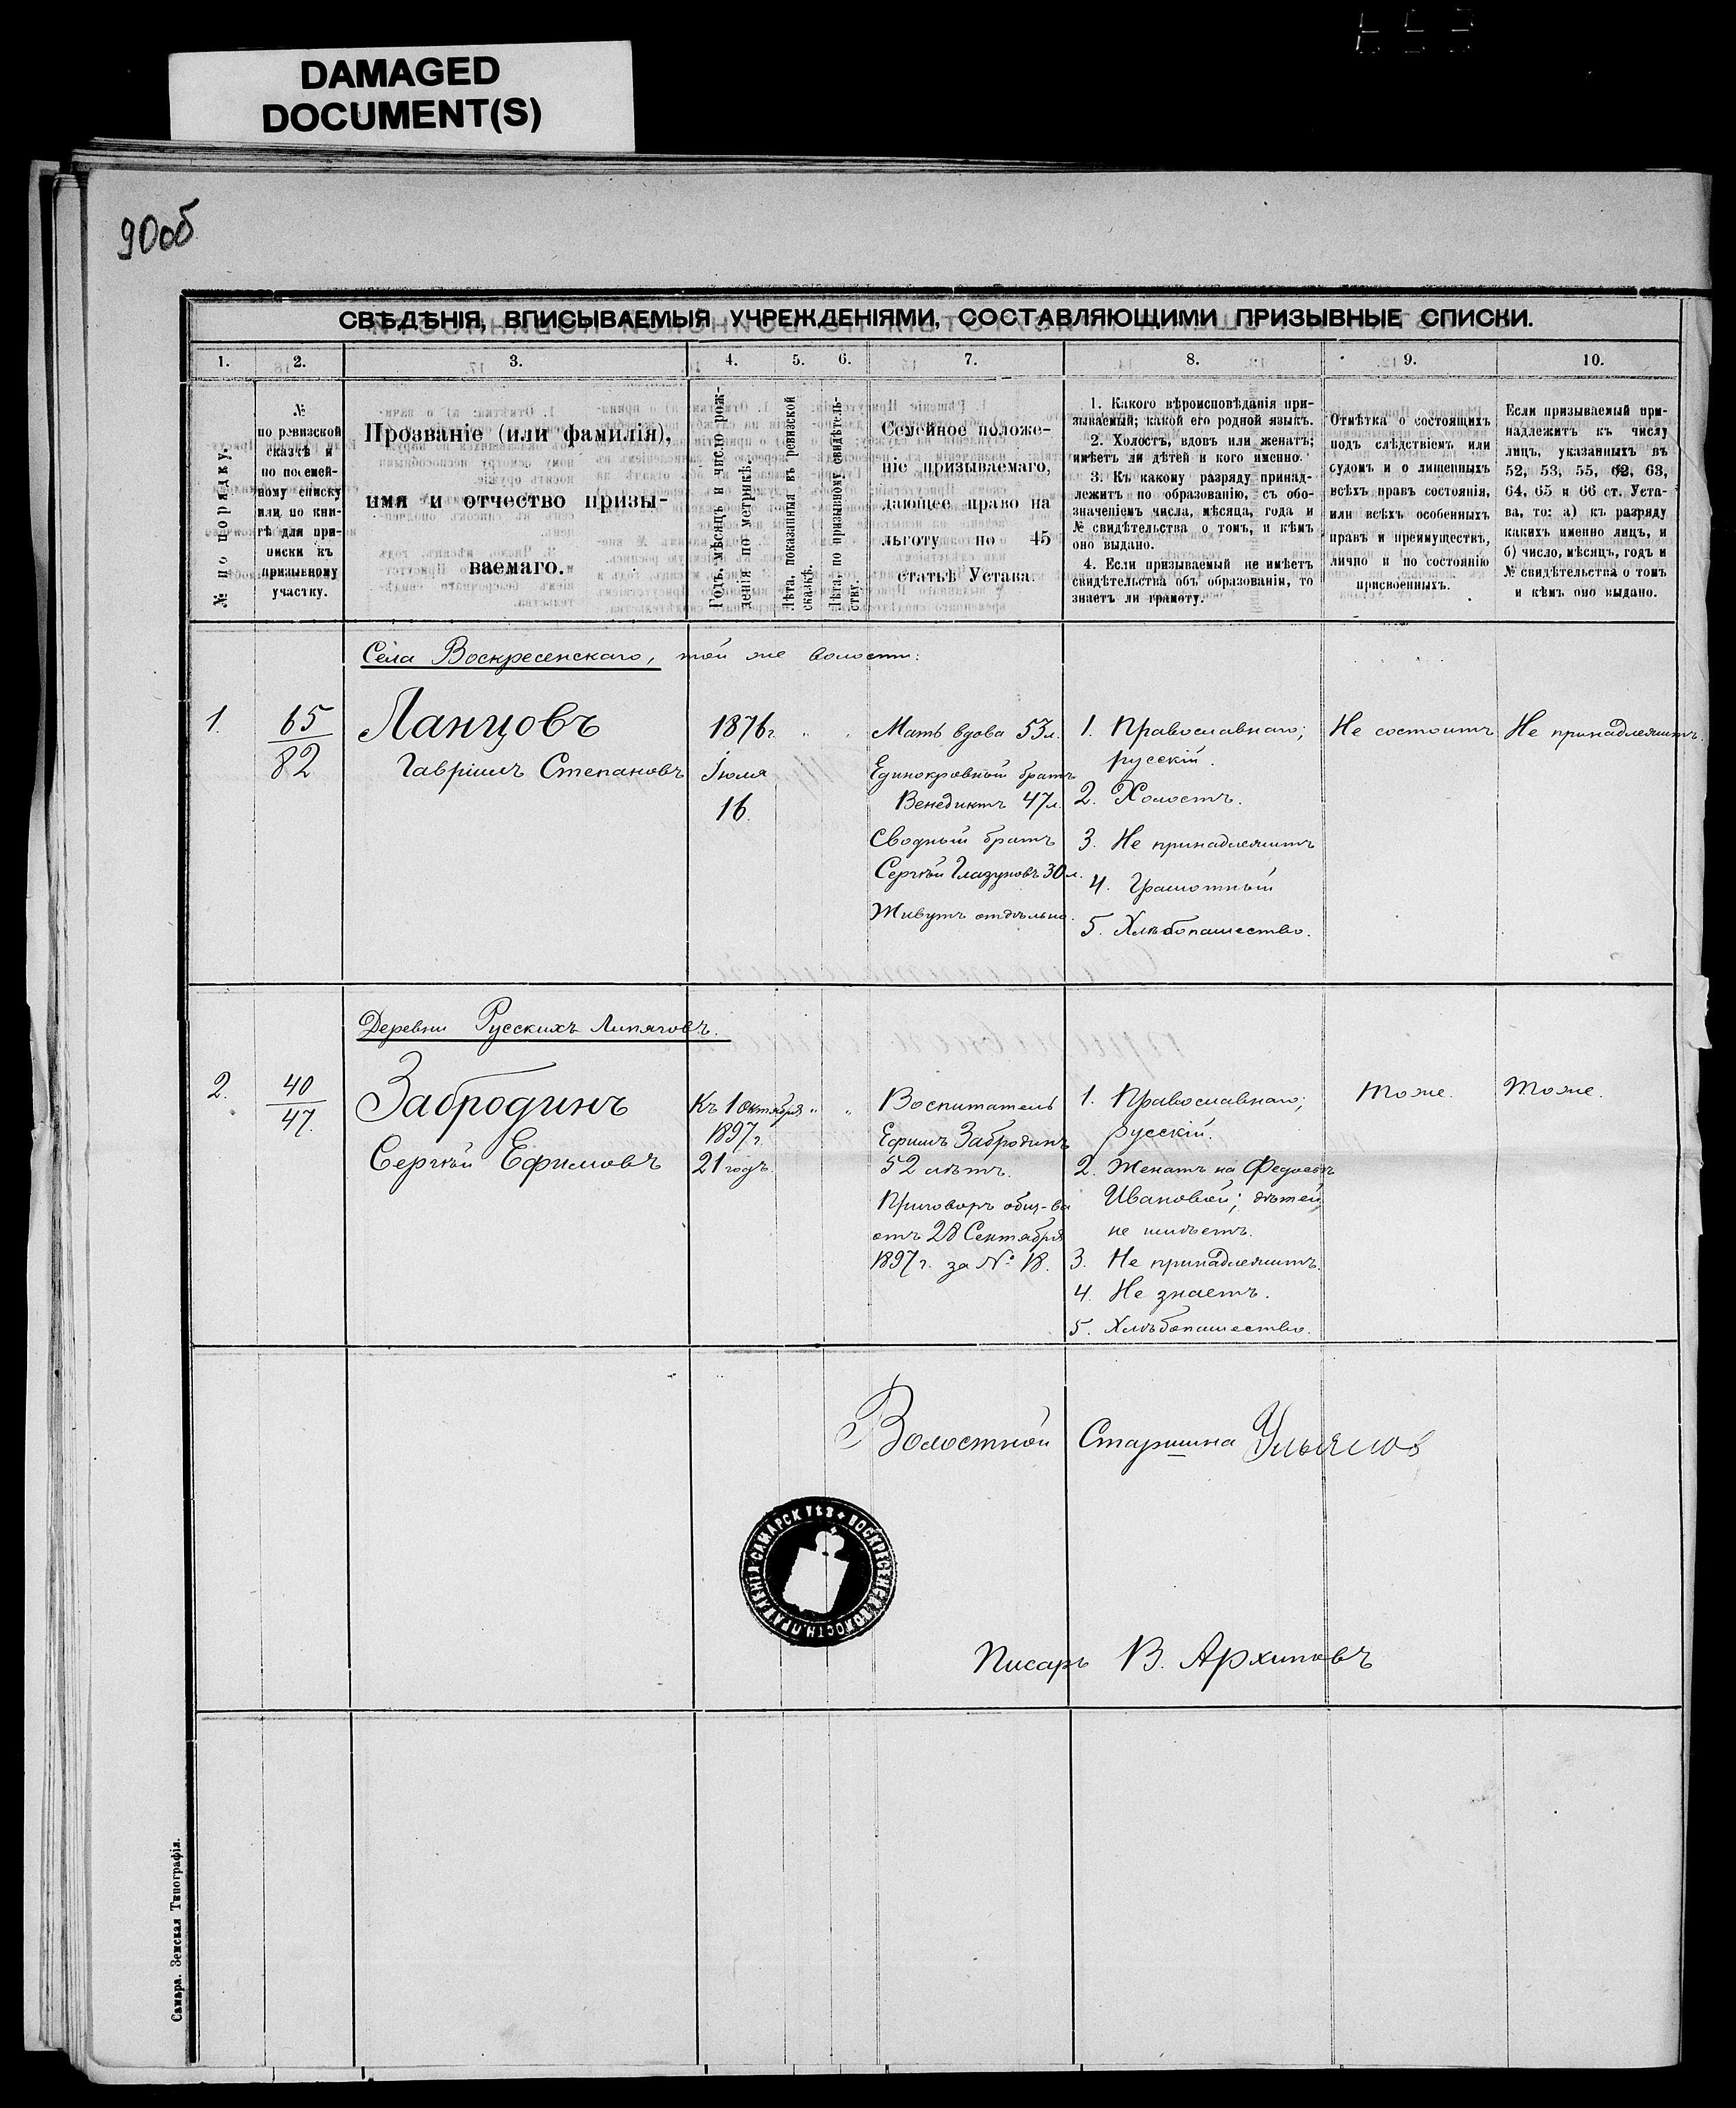 DAMAGED
DOCUMENT(S)
90об
СВѢДѢНІЯ, ВПИСЫВАЕМЫЯ УЧРЕЖДЕНІЯМИ, СОСТАВЛЯЮЩИМИ ПРИЗЫВНЫЕ СПИСКИ.
1. 2. 3. 4. 5. 6. 7. 8. 9. 10.
№ по порядку.
№
по ревизской
сказкѣ и
по посемей-
ному списку
или по кни-
гѣ для при-
писки къ
призывному
участку.
Прозваніе (или фамилія),
имя и отчество призы-
ваемаго.
Годъ, мѣсяцъ и число рож-
денія по метрикѣ.
Лѣта, показанныя въ ревизской
сказкѣ.
Лѣта, по призывному свидѣтель-
ству.
Семейное положе-
ніе призываемаго,
дающее право на
льготу по 45
статьѣ Устава.
1. Какого вѣроисповѣданія при-
зываемый; какой его родной языкъ.
2. Холостъ, вдовъ или женатъ;
имѣетъ ли дѣтей и кого именно.
3. Къ какому разряду принад-
лежитъ по образованію, съ обо-
значеніемъ числа, мѣсяца, года и
№ свидѣтельства о томъ, и кѣмъ
оно выдано.
4. Если призываемый не имѣетъ
свидѣтельства объ образованіи, то
знаетъ ли грамоту.
Отмѣтка о состоящихъ
подъ слѣдствіемъ или
судомъ и о лишенныхъ
всѣхъ правъ состоянія,
или всѣхъ особенныхъ
правъ и преимуществъ,
лично и по состоянію
присвоенныхъ.
Если призываемый при-
надлежитъ къ числу
лицъ, указанныхъ въ
52, 53, 55, 62, 63,
64, 65 и 66 ст. Уста-
ва, то: а) къ разряду
какихъ именно лицъ, и
б) число, мѣсяцъ, годъ и
№ свидѣтельства о томъ
и кѣмъ оно выдано.
Села Воскресенскаго, той же волости:
1.
65
82
Ланцовъ
Гавріилъ Степановъ
1876 г.
Іюля
16.
" "
Мать вдова 53 л.
Единокровный братъ
Венедиктъ 47 л.
Сводный братъ
Сергѣй Глазуновъ 30 л.
Живутъ отдѣльно.
1. Православнаго;
русскій.
2. Холостъ.
3. Не принадлежитъ
4. Грамотный
5. Хлѣбопашество.
Не состоитъ
Не принадлежитъ.
Деревни Русскихъ Липяговъ.
2.
40
47.
Забродинъ
Сергѣй Ефимовъ
Къ 1 Октября
1897 г.
21 годъ.
" "
Воспитатель
Ефимъ Забродинъ
52 лѣтъ.
Приговоръ общ-ва
отъ 28 Сентября
1897 г. за № 18.
1. Православнаго;
русскій.
2. Женатъ на
Ивановой; дѣтей
не имѣетъ.
3. Не принадлежитъ.
4. Не знаетъ.
5. Хлѣбопашество.
Тоже.
Тоже.
Волостной Старшина
САМАРСК УѢЗ ВОСКРЕСЕНСК ВОЛОСТН. ПРАВЛЕНІЯ
Писарь В. Архиповъ
Самара. Земская Типографія.